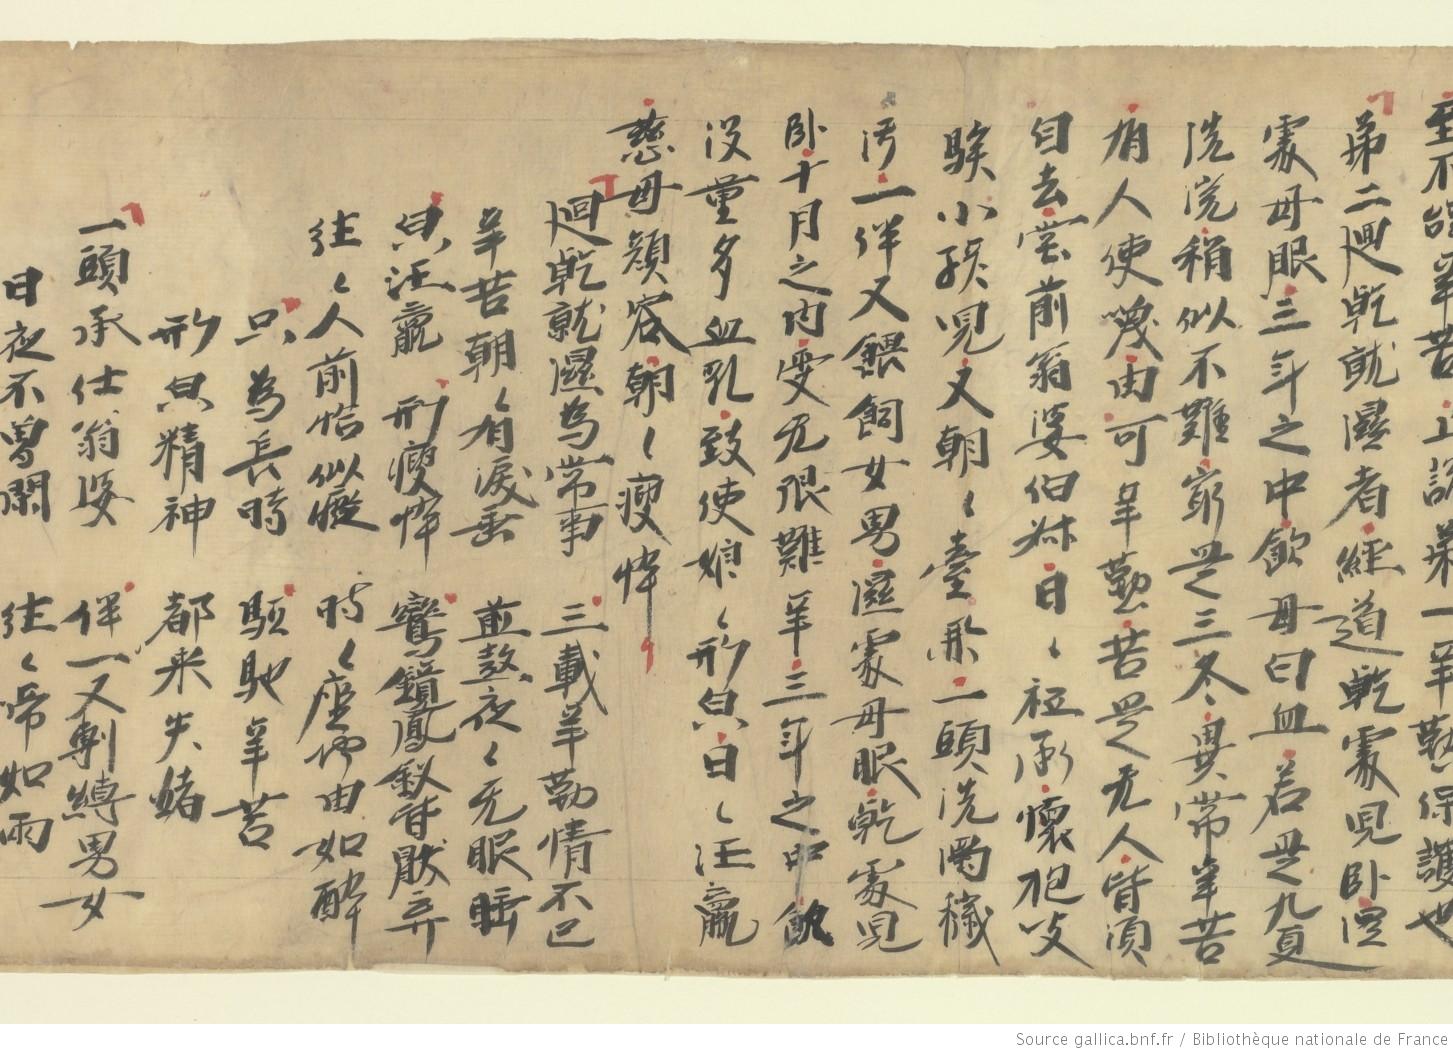 至不說辛苦止説弟一辛勤保護也
弟二迴乾就濕者經道乾處兒卧濕
處母眼三年之中飲母曰血若是九夏
洗浣稍似不難窮是三冬異常辛苦
有人使喚由可辛懃苦是无人皆須
自去堂前翁婆伯叔日〻祗承懷抱
騃小孩兒又朝〻臺舉一頭洗濁穢
汚一伴又餵飼女男濕處母眠乾處兒
卧十月之内受无限難辛三年之中飲
沒量多血乳致使娘〻形皃日〻汪羸
慈母顔容朝〻瘦悴
迴乾就濕為常事 三載辛勤情不已
辛苦朝〻有淚垂 煎熬夜〻无眠睡
皃汪羸 形瘦悴 鸞鏡鳳釵皆猒弃
往〻人前恰似癡 時〻座地由如醉
只為長時 驅馳辛苦
形皃精神 都來失緒
一頭承仕翁婆 伴一又剸縛男女
日夜不曾閑 往〻啼如雨
Source gallica.bnf.fr / Bibliothèque nationale de France